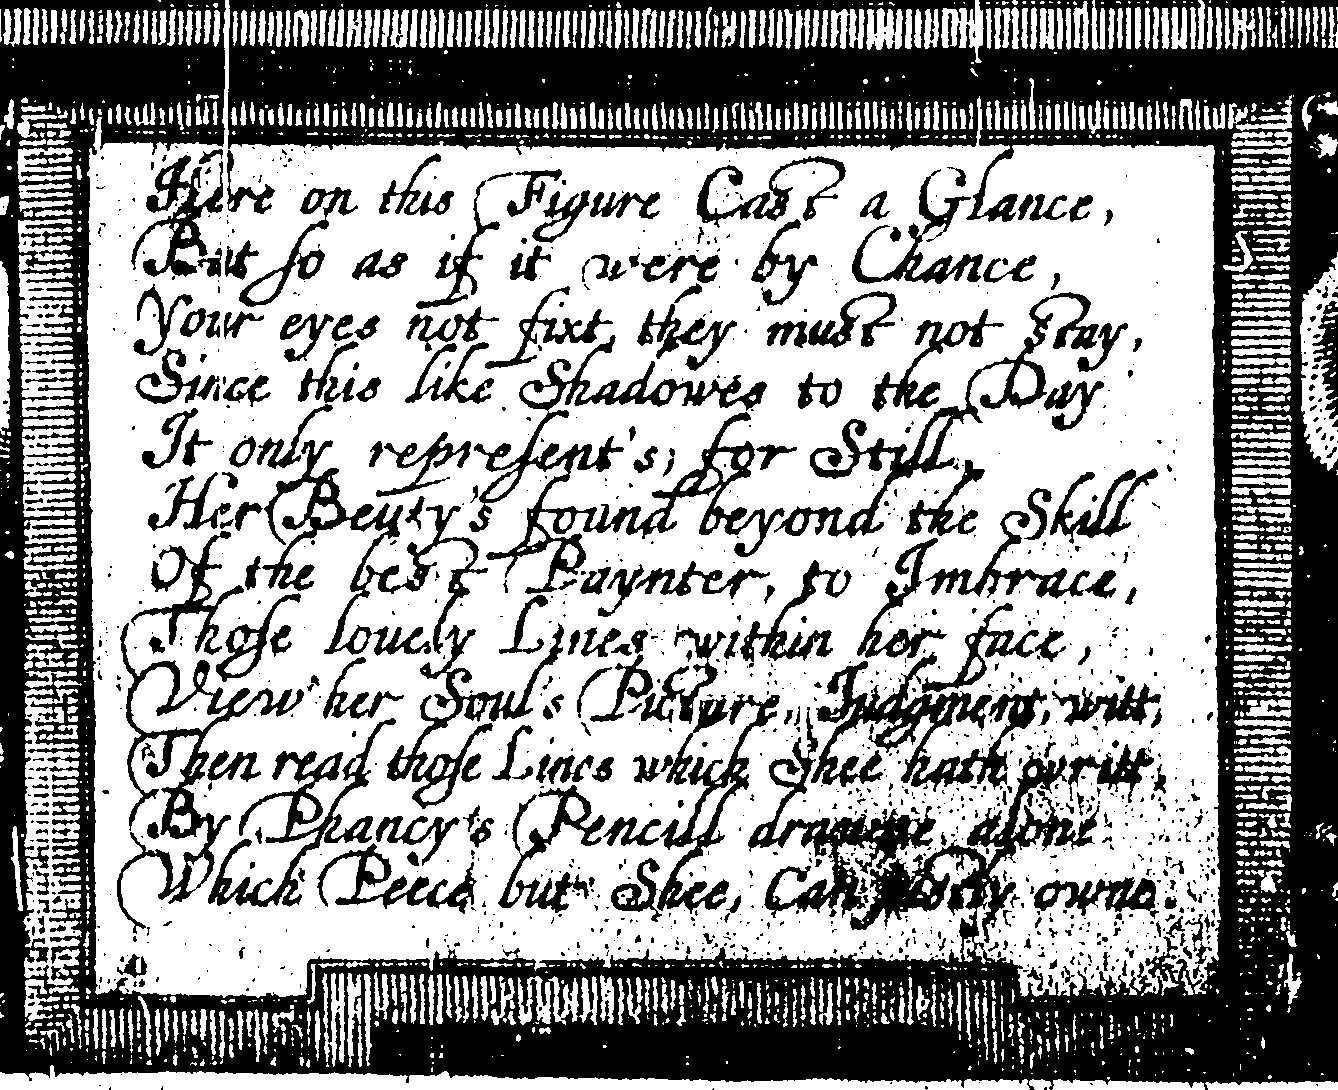 Here on this Figure Cast a Glance,
But so as if it were by Chance,
Your eyes not fixt, they must not stay,
Since this like Shadowes to the Day
It only represent's; for Still,
Her Beuty's found beyond the Skill
Of the best Paynter, to Imbrace,
Those louely Lines within her face,
View her Soul's Picture, Judgment, witt,
Then read those Lines which Shee hath writt,
By Phancy's Pencill drawne alone
Which Peece but Shee, Can justly owne.